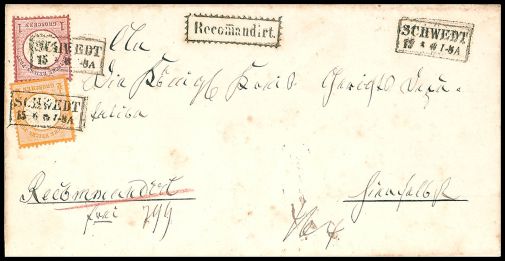 1 GROSCHEN 1
SCHWEDT
15 6 1-8A
Recomandirt.
SCHWEDT
15 6 1-8A
An
Die Königl. Kreis Gerichts Depu-
tation
SCHWEDT
15 6 1-8A
Recommandirt
frei 799
Hierselbst